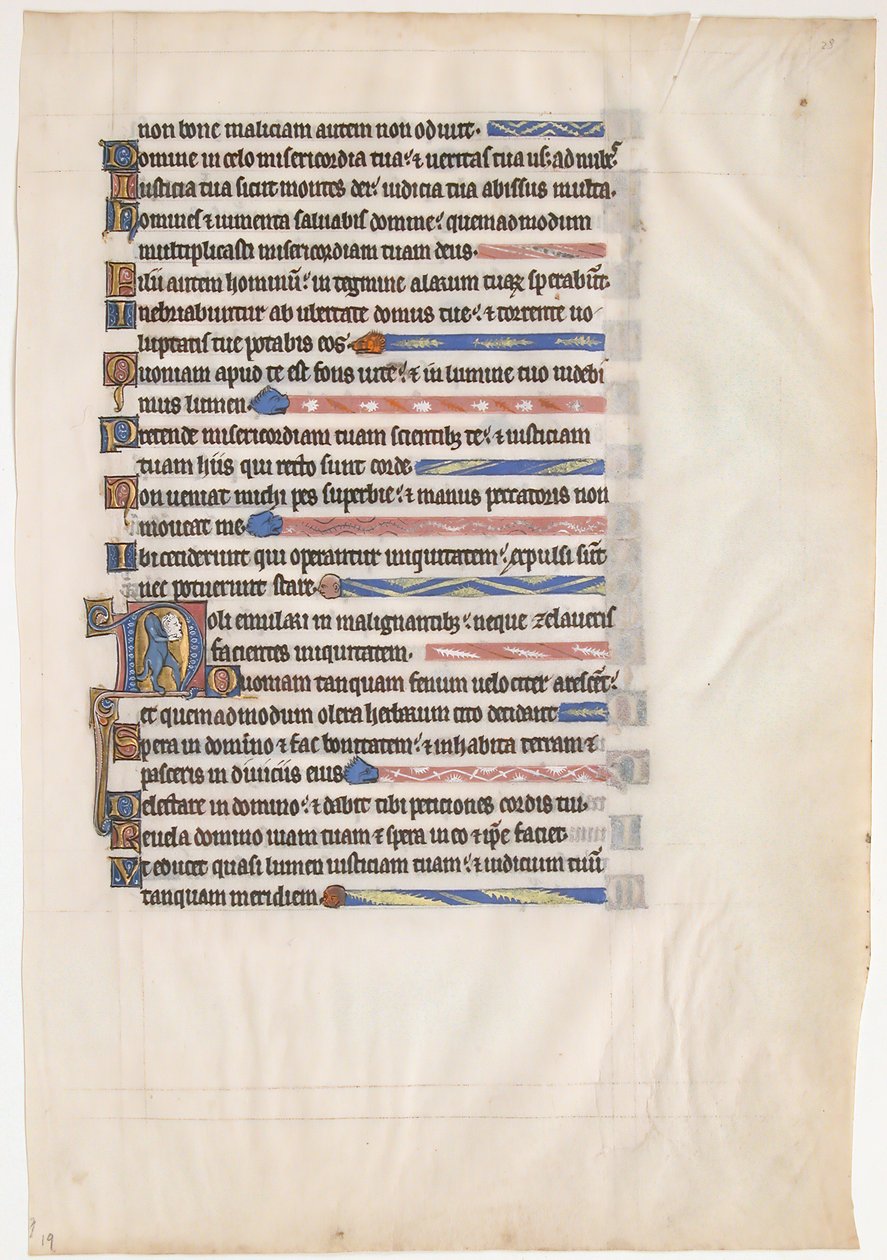 28
non bone maliciam autem non odiuit.
Domine in celo misericordia tua: & ueritas tua us; ad nub;
Iusticia tua sicut montes dei: iudicia tua abissus multa.
homines & iumenta saluabis domine: quemadmodum
multiplicasti misericordiam tuam deus.
Filii autem hominū: in tegmine alarum tuaꝝ sperabūt.
Inebriabuntur ab ubertate domus tue: & torrente uo
luptatis tue potabis eos.
Quoniam apud te est fons uite: & in lumine tuo uidebi
mus lumen.
Pretende misericordiam tuam scientibꝫ te: & iusticiam
tuam hiis qui recto sunt corde.
Non ueniat michi pes superbie: & manus peccatoris non
moueat me.
Ibi ceciderunt qui operantur iniquitatem: expulsi sūt
nec potuerunt stare.
Noli emulari in malignantibꝫ: neque zelaueris
facientes iniquitatem.
Quoniam tanquam fenum uelociter arescēt:
et quemadmodum olera herbarum cito decidant
Spera in domino & fac bonitatem: & inhabita terram &
pasceris in diuiciis eius
Delectare in domino: & dabit tibi peticiones cordis tui.
Reuela domino uiam tuam & spera in eo & ip̄e faciet.
Vt educet quasi lumen iusticiam tuam: & iudicium tuū
tanquam meridiem.
19